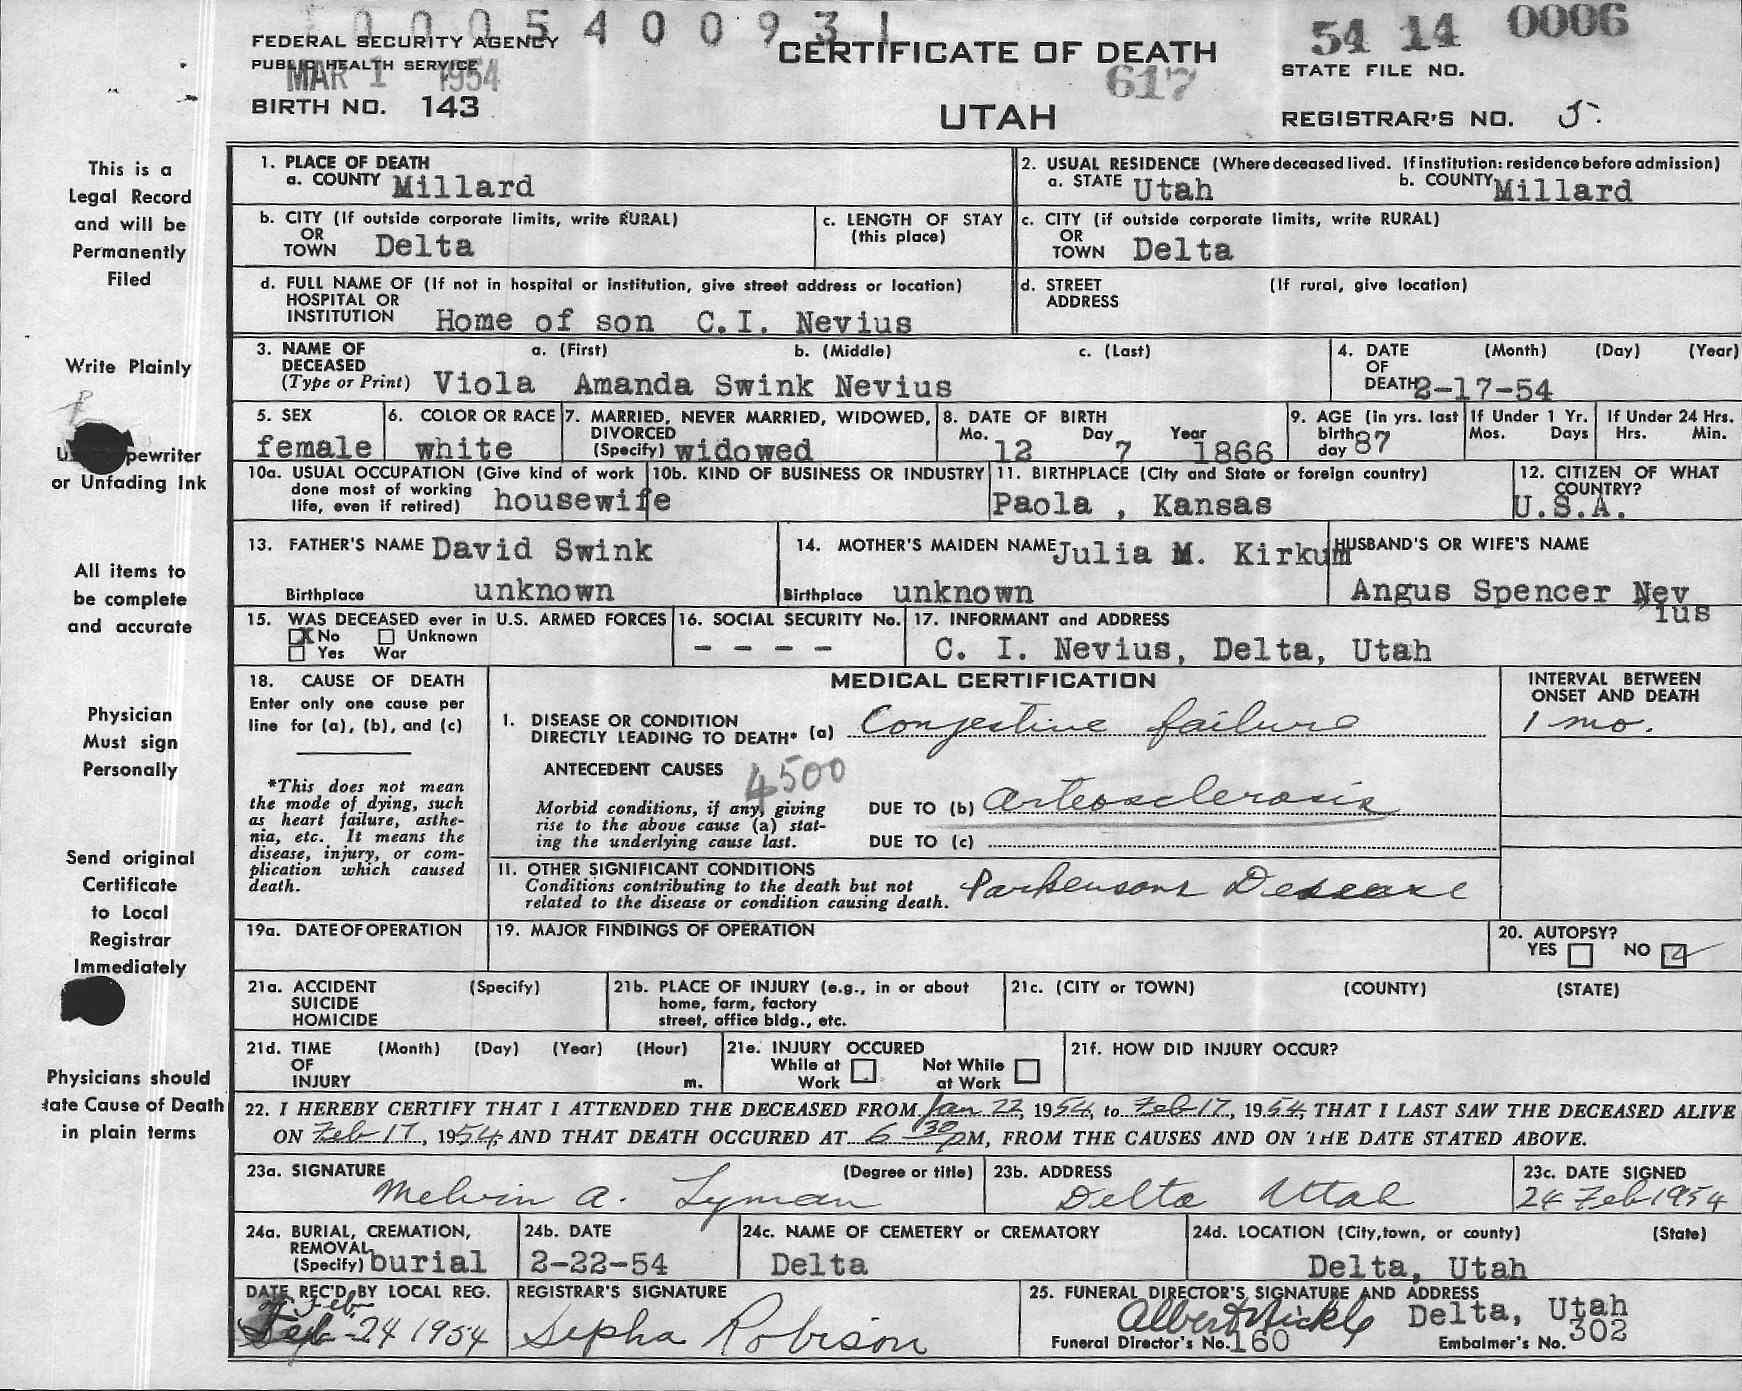 1000540093 1
FEDERAL SECURITY AGENCY
PUBLIC HEALTH SERVICE
MAR 1 1954
BIRTH NO. 143
CERTIFICATE OF DEATH
617
UTAH
54 14 0006
STATE FILE NO.
REGISTRAR'S NO. 5.
This is a
Legal Record
and will be
Permanently
Filed
Write Plainly
pewriter
or Unfading Ink
All items to
be complete
and accurate
Physician
Must sign
Personally
Send original
Certificate
to Local
Registrar
Immediately
Physicians should
tate Cause of Death
in plain terms
1. PLACE OF DEATH
a. COUNTY Millard
2. USUAL RESIDENCE (Where deceased lived. If institution: residence before admission)
a. STATE Utah b. COUNTY Millard
b. CITY (If outside corporate limits, write RURAL)
OR
TOWN Delta
c. LENGTH OF STAY
(this place)
c. CITY (if outside corporate limits, write RURAL)
OR
TOWN Delta
d. FULL NAME OF (If not in hospital or institution, give street address or location)
HOSPITAL OR
INSTITUTION Home of son C.I. Nevius
d. STREET (If rural, give location)
ADDRESS
3. NAME OF a. (First) b. (Middle) c. (Last)
DECEASED
(Type or Print) Viola Amanda Swink Nevius
4. DATE (Month) (Day) (Year)
OF
DEATH 2-17-54
5. SEX
female
6. COLOR OR RACE
white
7. MARRIED, NEVER MARRIED, WIDOWED,
DIVORCED
(Specify) widowed
8. DATE OF BIRTH
Mo. Day Year
12 7 1866
9. AGE (in yrs. last
birth
day 87
If Under 1 Yr.
Mos. Days
If Under 24 Hrs.
Hrs. Min.
10a. USUAL OCCUPATION (Give kind of work
done most of working
life, even if retired) housewife
10b. KIND OF BUSINESS OR INDUSTRY
11. BIRTHPLACE (City and State or foreign country)
Paola , Kansas
12. CITIZEN OF WHAT
COUNTRY?
U.S.A.
13. FATHER'S NAME David Swink
Birthplace unknown
14. MOTHER'S MAIDEN NAME Julia M. Kirkum
Birthplace unknown
HUSBAND'S OR WIFE'S NAME
Angus Spencer Nev
ius
15. WAS DECEASED ever in U.S. ARMED FORCES
X No Unknown
Yes War
16. SOCIAL SECURITY No.
- - - -
17. INFORMANT and ADDRESS
C. I. Nevius, Delta, Utah
18. CAUSE OF DEATH
Enter only one cause per
line for (a), (b), and (c)
*This does not mean
the mode of dying, such
as heart failure, asthe-
nia, etc. It means the
disease, injury, or com-
plication which caused
death.
MEDICAL CERTIFICATION
INTERVAL BETWEEN
ONSET AND DEATH
I. DISEASE OR CONDITION
DIRECTLY LEADING TO DEATH* (a) Conjestive failure 1 mo.
ANTECEDENT CAUSES 4500
Morbid conditions, if any, giving
rise to the above cause (a) stat-
ing the underlying cause last.
DUE TO (b) arteosclerosis
DUE TO (c)
II. OTHER SIGNIFICANT CONDITIONS
Conditions contributing to the death but not
related to the disease or condition causing death.
Parkensons Desease
19a. DATE OF OPERATION
19. MAJOR FINDINGS OF OPERATION
20. AUTOPSY?
YES NO
21a. ACCIDENT (Specify)
SUICIDE
HOMICIDE
21b. PLACE OF INJURY (e.g., in or about
home, farm, factory
street, office bldg., etc.
21c. (CITY or TOWN) (COUNTY) (STATE)
21d. TIME (Month) (Day) (Year) (Hour)
OF
INJURY m.
21e. INJURY OCCURED
While at Work Not While at Work
21f. HOW DID INJURY OCCUR?
22. I HEREBY CERTIFY THAT I ATTENDED THE DECEASED FROM Jan 22, 1954, to Feb 17, 1954, THAT I LAST SAW THE DECEASED ALIVE
ON Feb 17, 1954, AND THAT DEATH OCCURED AT 6 30 PM, FROM THE CAUSES AND ON THE DATE STATED ABOVE.
23a. SIGNATURE (Degree or title)
Melvin A. Lyman
23b. ADDRESS
Delta Utah
23c. DATE SIGNED
24 Feb 1954
24a. BURIAL, CREMATION,
REMOVAL
(Specify) burial
24b. DATE
2-22-54
24c. NAME OF CEMETERY or CREMATORY
Delta
24d. LOCATION (City, town, or county) (State)
Delta, Utah
DATE REC'D BY LOCAL REG.
Feb
Feb-24 1954
REGISTRAR'S SIGNATURE
Sepha Robison
25. FUNERAL DIRECTOR'S SIGNATURE AND ADDRESS
Albert Nickle Delta, Utah
Funeral Director's No. 160 Embalmer's No. 302